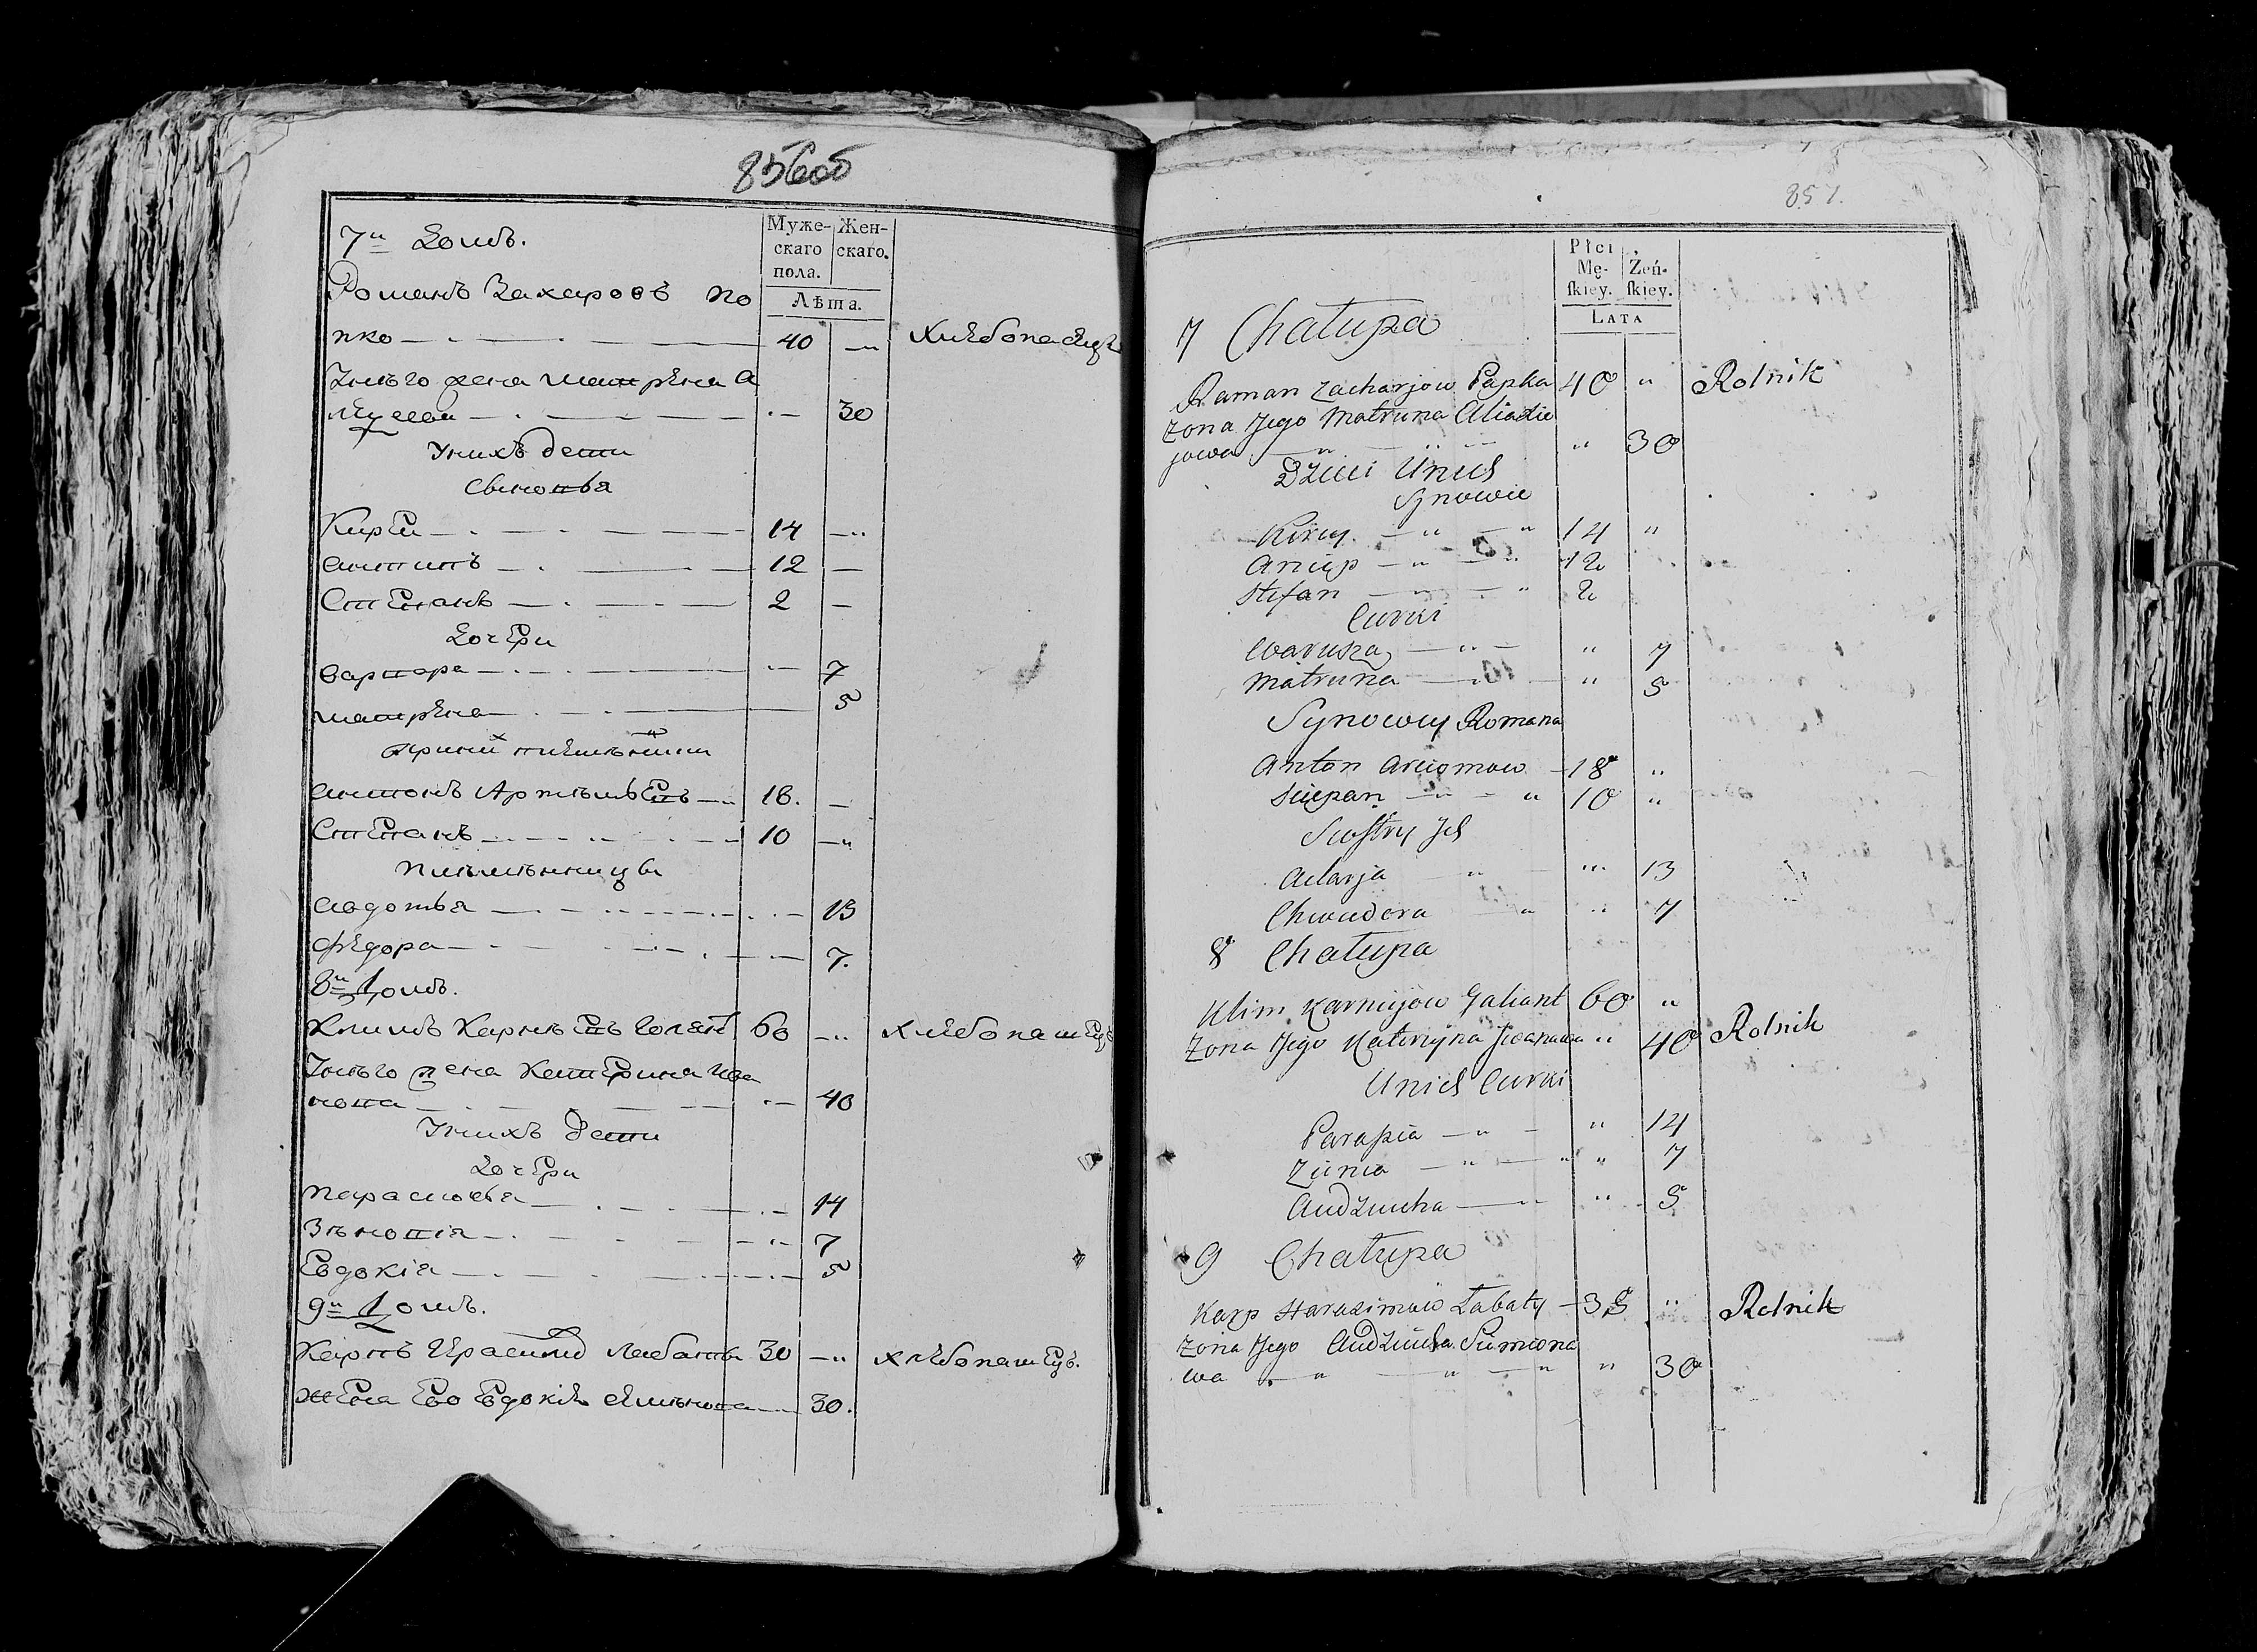 856об
7й Домъ.
Муже-
скаго
пола.
Жен-
скаго.
Лѣта.
Романъ Захаровъ По
пко 40 — Хлебопашецъ
Унего жена матрена А
30
Унихъ дети
Сыновья
Кирей 14
антипъ 12 —
Степанъ 2 —
Дочери
варвара 7
матрена 5
антонъ Артемьевъ 18. —
Степанъ 10
племенницы
авдотья 13
федора 7.
8й Домъ.
Климъ Карнеевъ Голант 60 Хлебопашецъ
Унего жена Катерина Ива
нова 40
Унихъ дети
Дочери
Парасковья 14
Зеновія 7
Евдокія 5
9й Домъ.
Карпъ Герасимов Лабаты 30 хлебопашецъ.
жена Ево Евдокія 30.
857.
Płci
Mę-
ſkiey.
Żeń-
ſkiey.
LATA
7 Chałupa
Raman Zacharjow Papka 40 " Rolnik
Zona Jego Matruna Aliaxie
jowa " 30
Dzieci Unich
Synowie
Kirey 14 "
Ancip 12
Stefan 2
Curki
Waruka " 7
Matruna " 5
Synowcy Romana
Anton Arciomow 18 "
Sciepan 10 "
Siostry Ich
" 13
Chwiedora " 7
8 Chałupa
Klim Karniejow Galiant 60 "
Zona Jego Katerzyna Iwanowa " 40 Rolnik
Unich Curki
Paraſia " 14
Zinia " 7
Audziucha " 5
9 Chałupa
Karp Harasimow Łabaty 38 " Rolnik
Zona Jego Audziucha Simiona
wa " 30